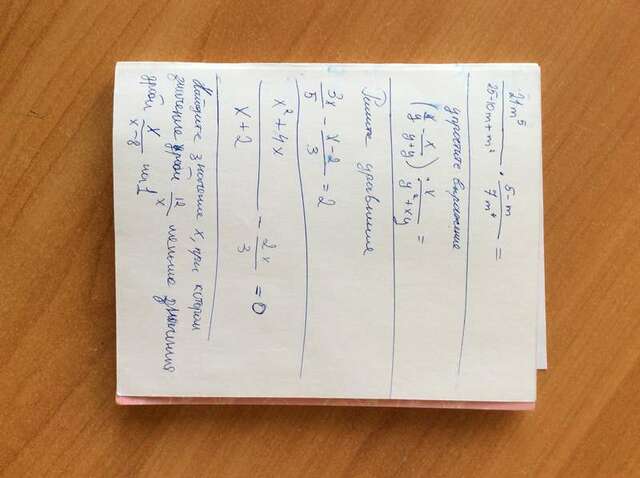 21m⁵ / 25-10m+m² · 5-m / 7m⁴ =
упростите выражение
(x/y - x/y+y) : x / y²+xy =
Решите уравнение
3x/5 - x-2/3 = 2
x²+4x / x+2 - 2x/3 = 0
Найдите значение x, при котором
значение дроби 12/x меньше значения
дроби x/x-8 на 1